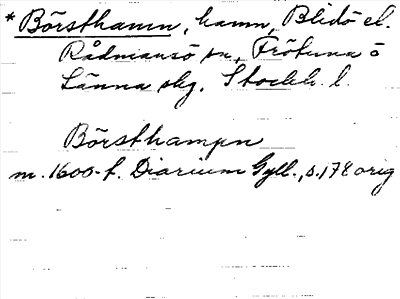 * Börsthamn, hamn, Blidö el.
Rådmansö sn, Frötuna o
Länna skg, Stockh. l.
Börsthampn
m. 1600-t. Diarium Gyll., s. 178 orig